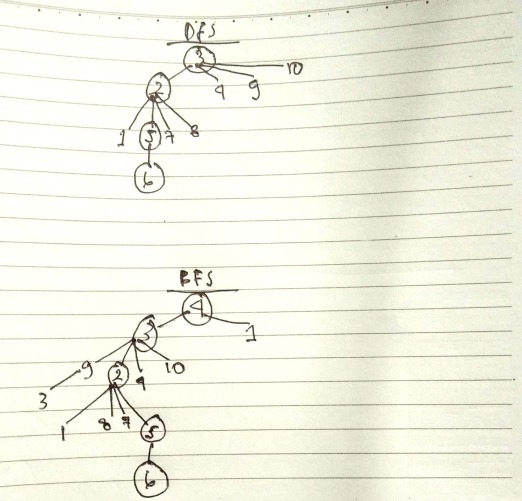 DFS
3
10
2 4 9
1 5 7 8
6
BFS
4
3 1
9 2 9 10
3
1 8 7 5
6